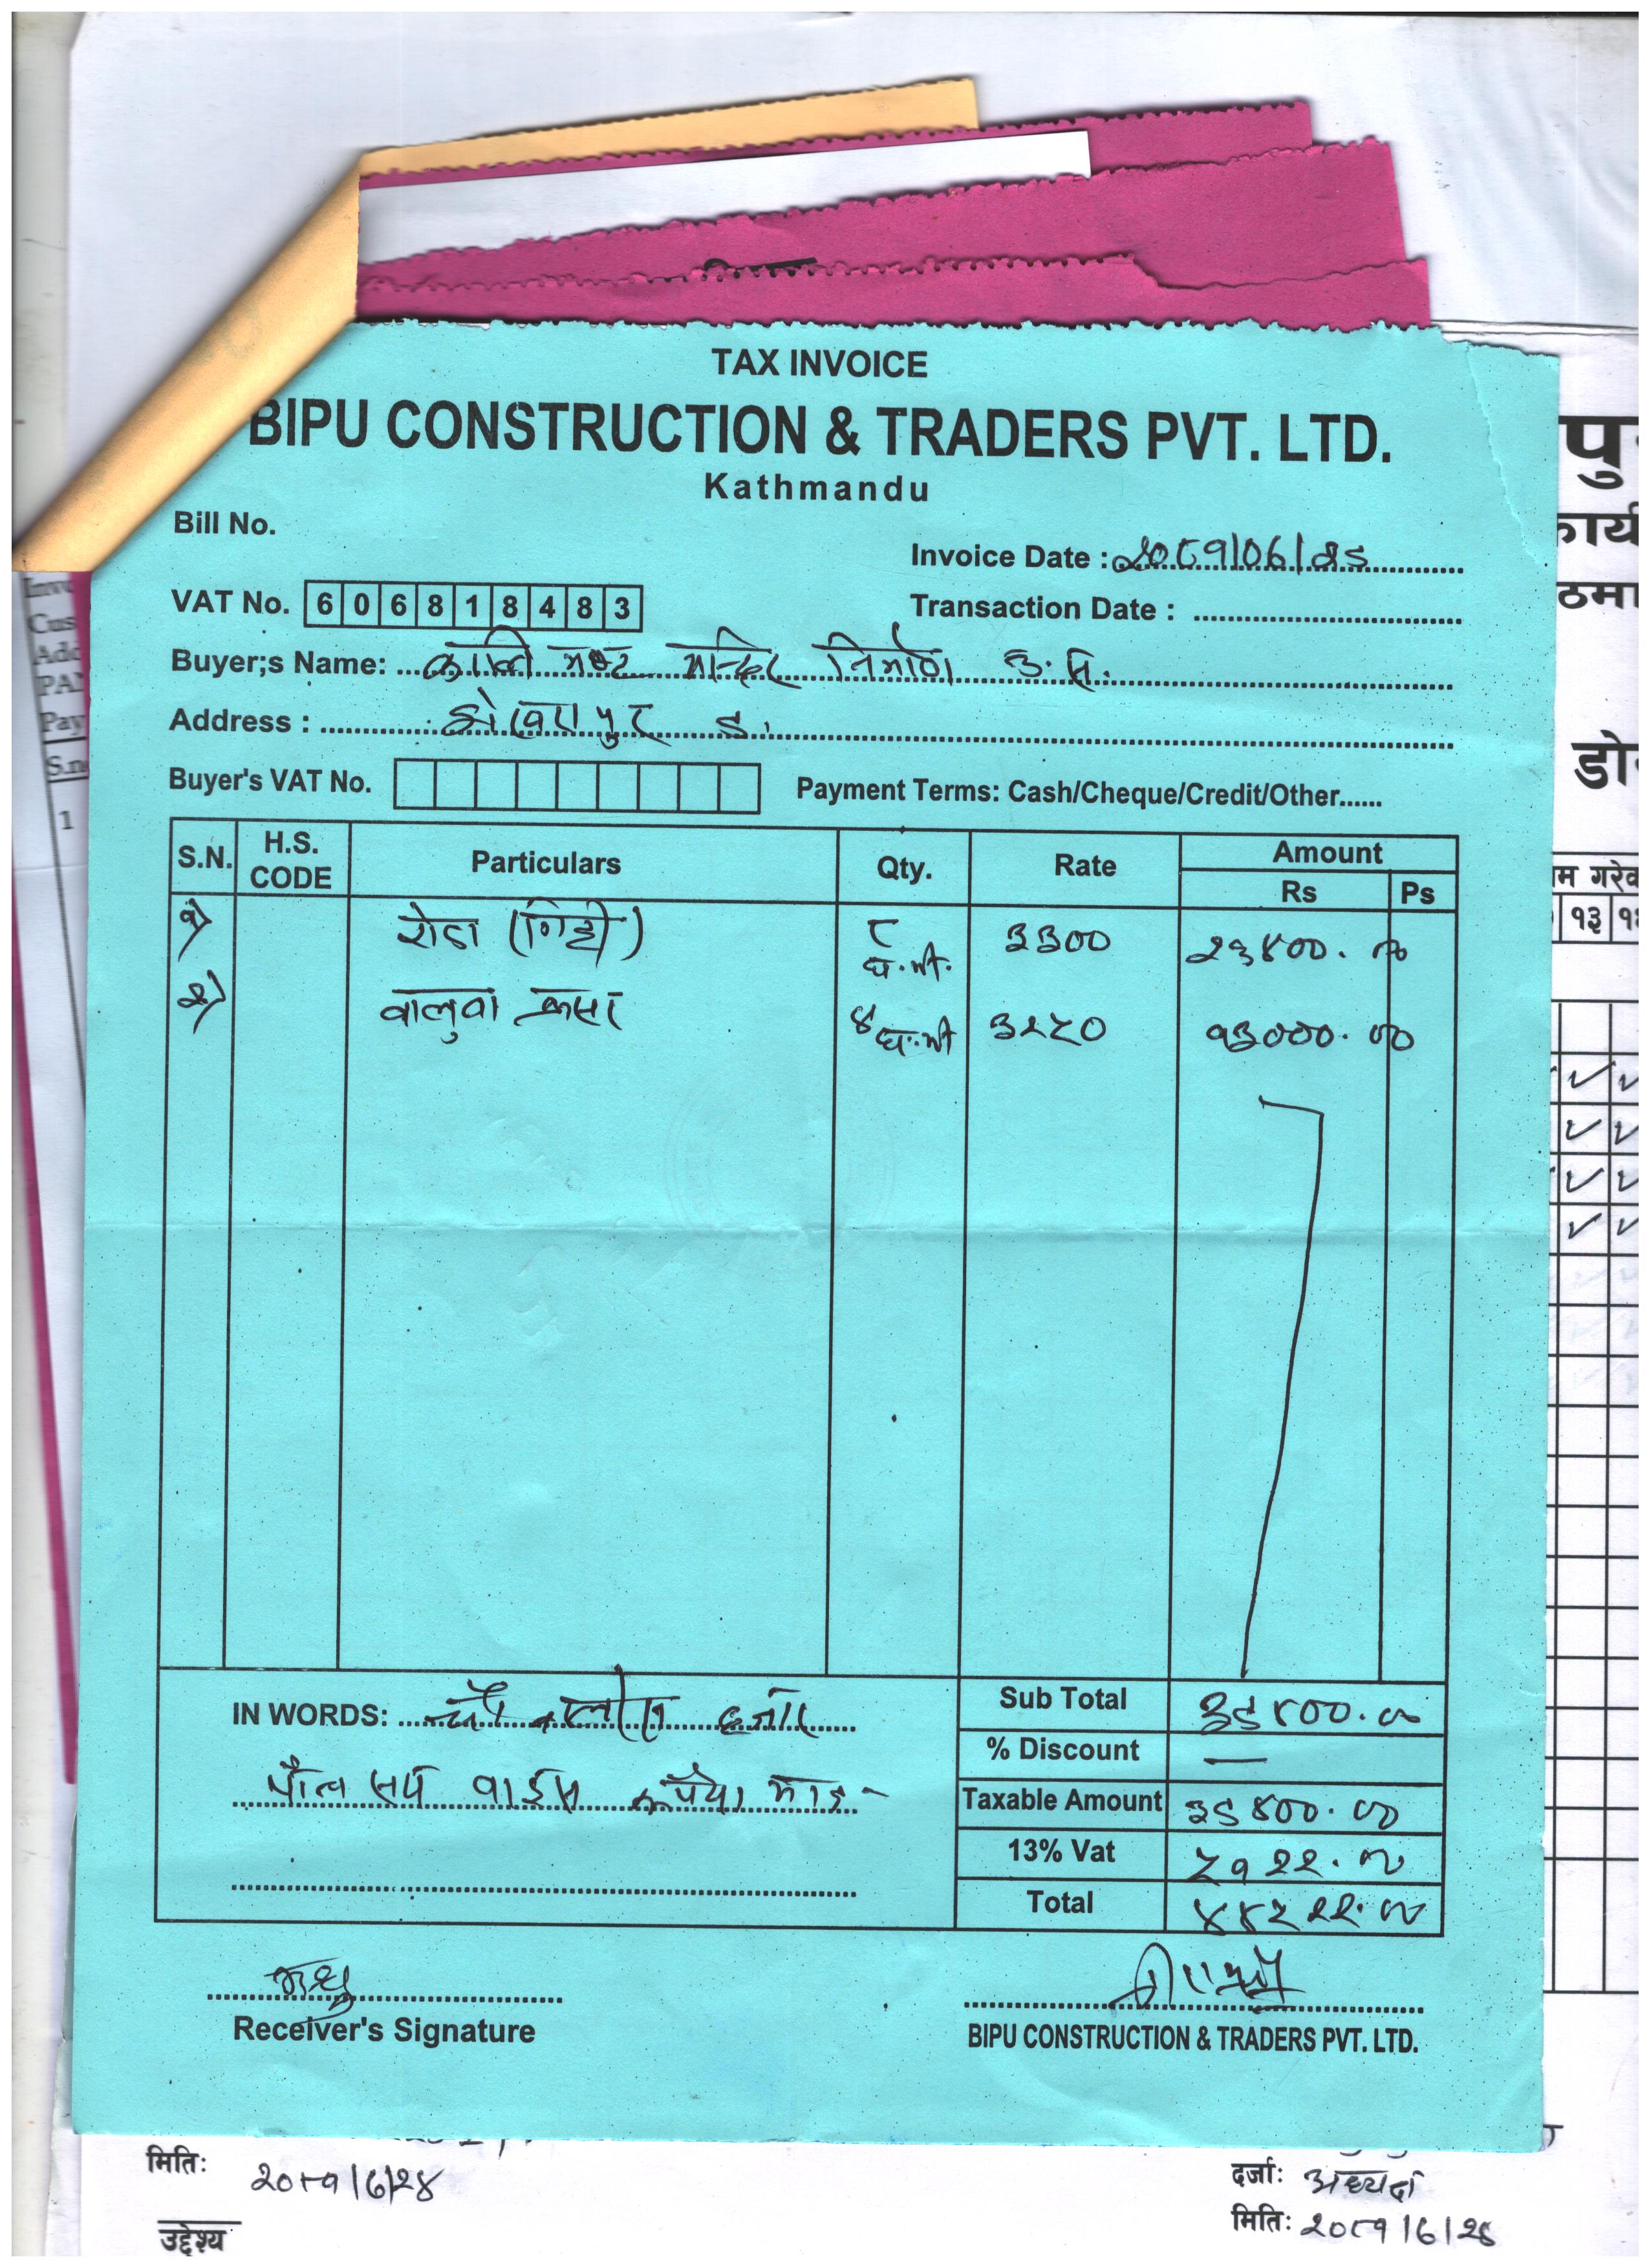 TAX INVOICE
BIPU CONSTRUCTION & TRADERS PVT. LTD.
Kathmandu
Bill No.
Invoice Date : २०८१/०७/२९
VAT No. 606818483
Transaction Date :
Buyer;s Name: मन्दिर निर्माण उ.स.
Address :
Buyer's VAT No.
Payment Terms: Cash/Cheque/Credit/Other......
S.N. H.S. CODE Particulars Qty. Rate Amount Rs Ps
१) रोडा (गिट्टी) ८ घ.मी. ३३०० २६४००.००
२) वालुवा ४ घ.मी ३२५० १३०००.००
IN WORDS: चौवालीस हजार
पाँच सय बाईस रूपैया मात्र
Sub Total ३९४००.००
% Discount —
Taxable Amount ३९४००.००
13% Vat ५१२२.००
Total ४४५२२.००
Receiver's Signature
BIPU CONSTRUCTION & TRADERS PVT. LTD.
मितिः २०८१/७/२४
उद्देश्य
दर्जाः अध्यक्ष
मितिः २०८१/७/२४
Inv
Cus
Add
PA
Pay
S.n
1
पु
कार्य
ठमा
डो
म गरेक
१३